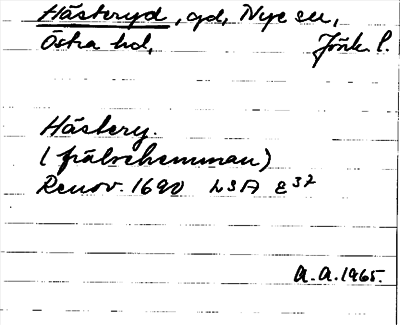 Hästeryd, gd, Nye sn,
Östra hd, Jönk. l.
Hästery.
(frälsehemman)
Renov. 1690 LSA E 32
A.A. 1965.